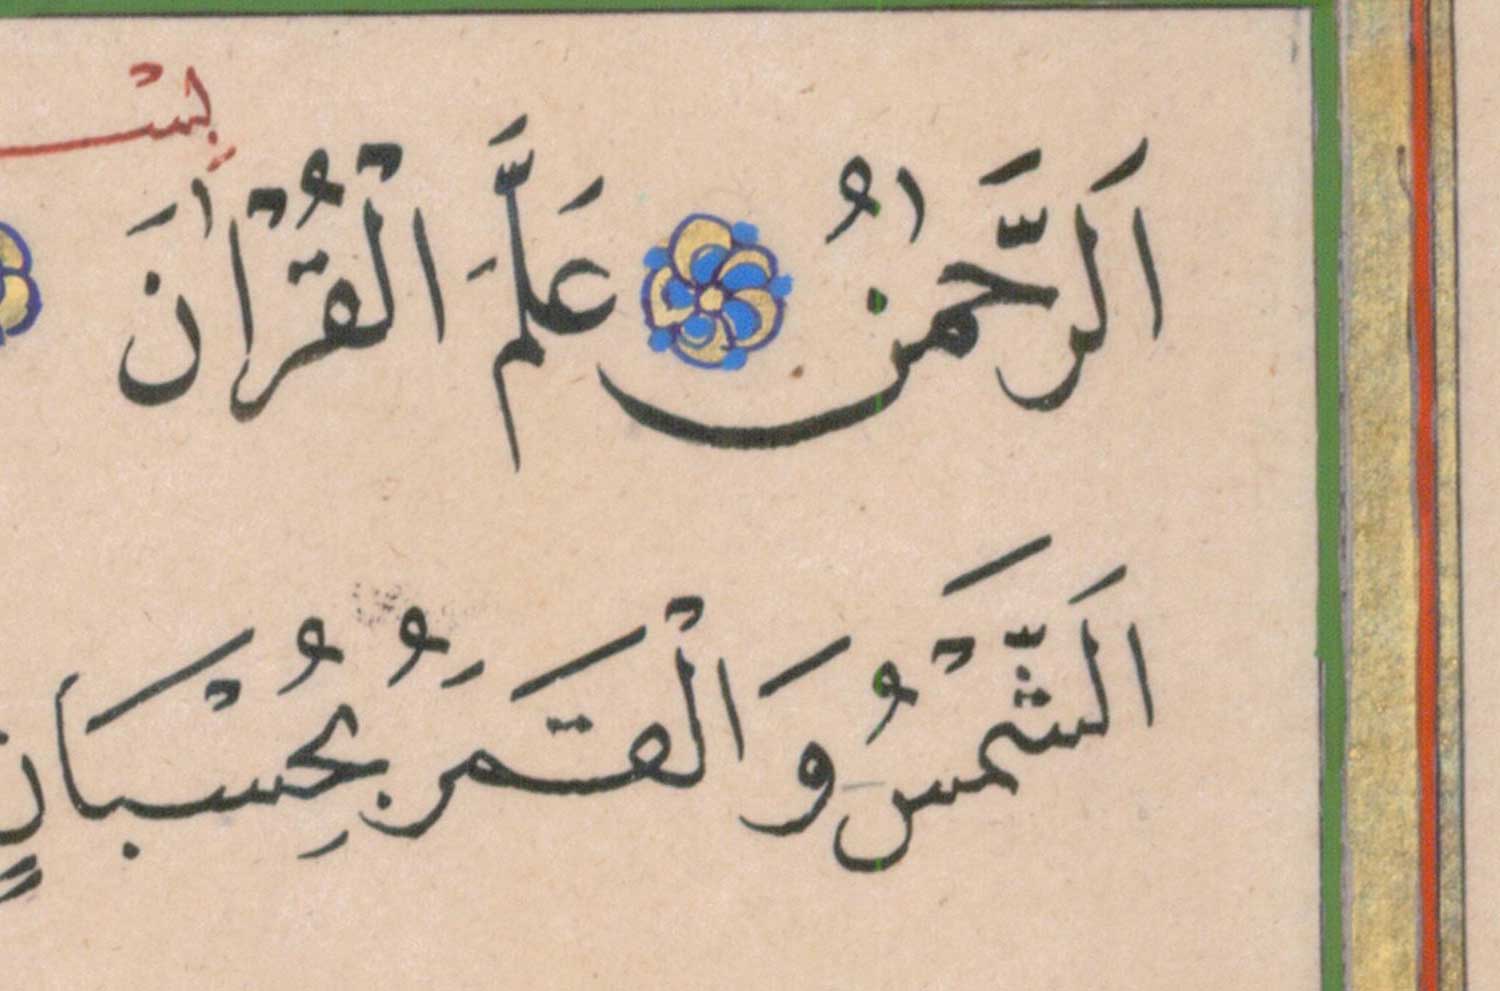 بِسْـ
اَلرَّحْمٰنُ عَلَّمَ الْقُرْاٰنَ
اَلشَّمْسُ وَالْقَمَرُ بِحُسْبَانٍ